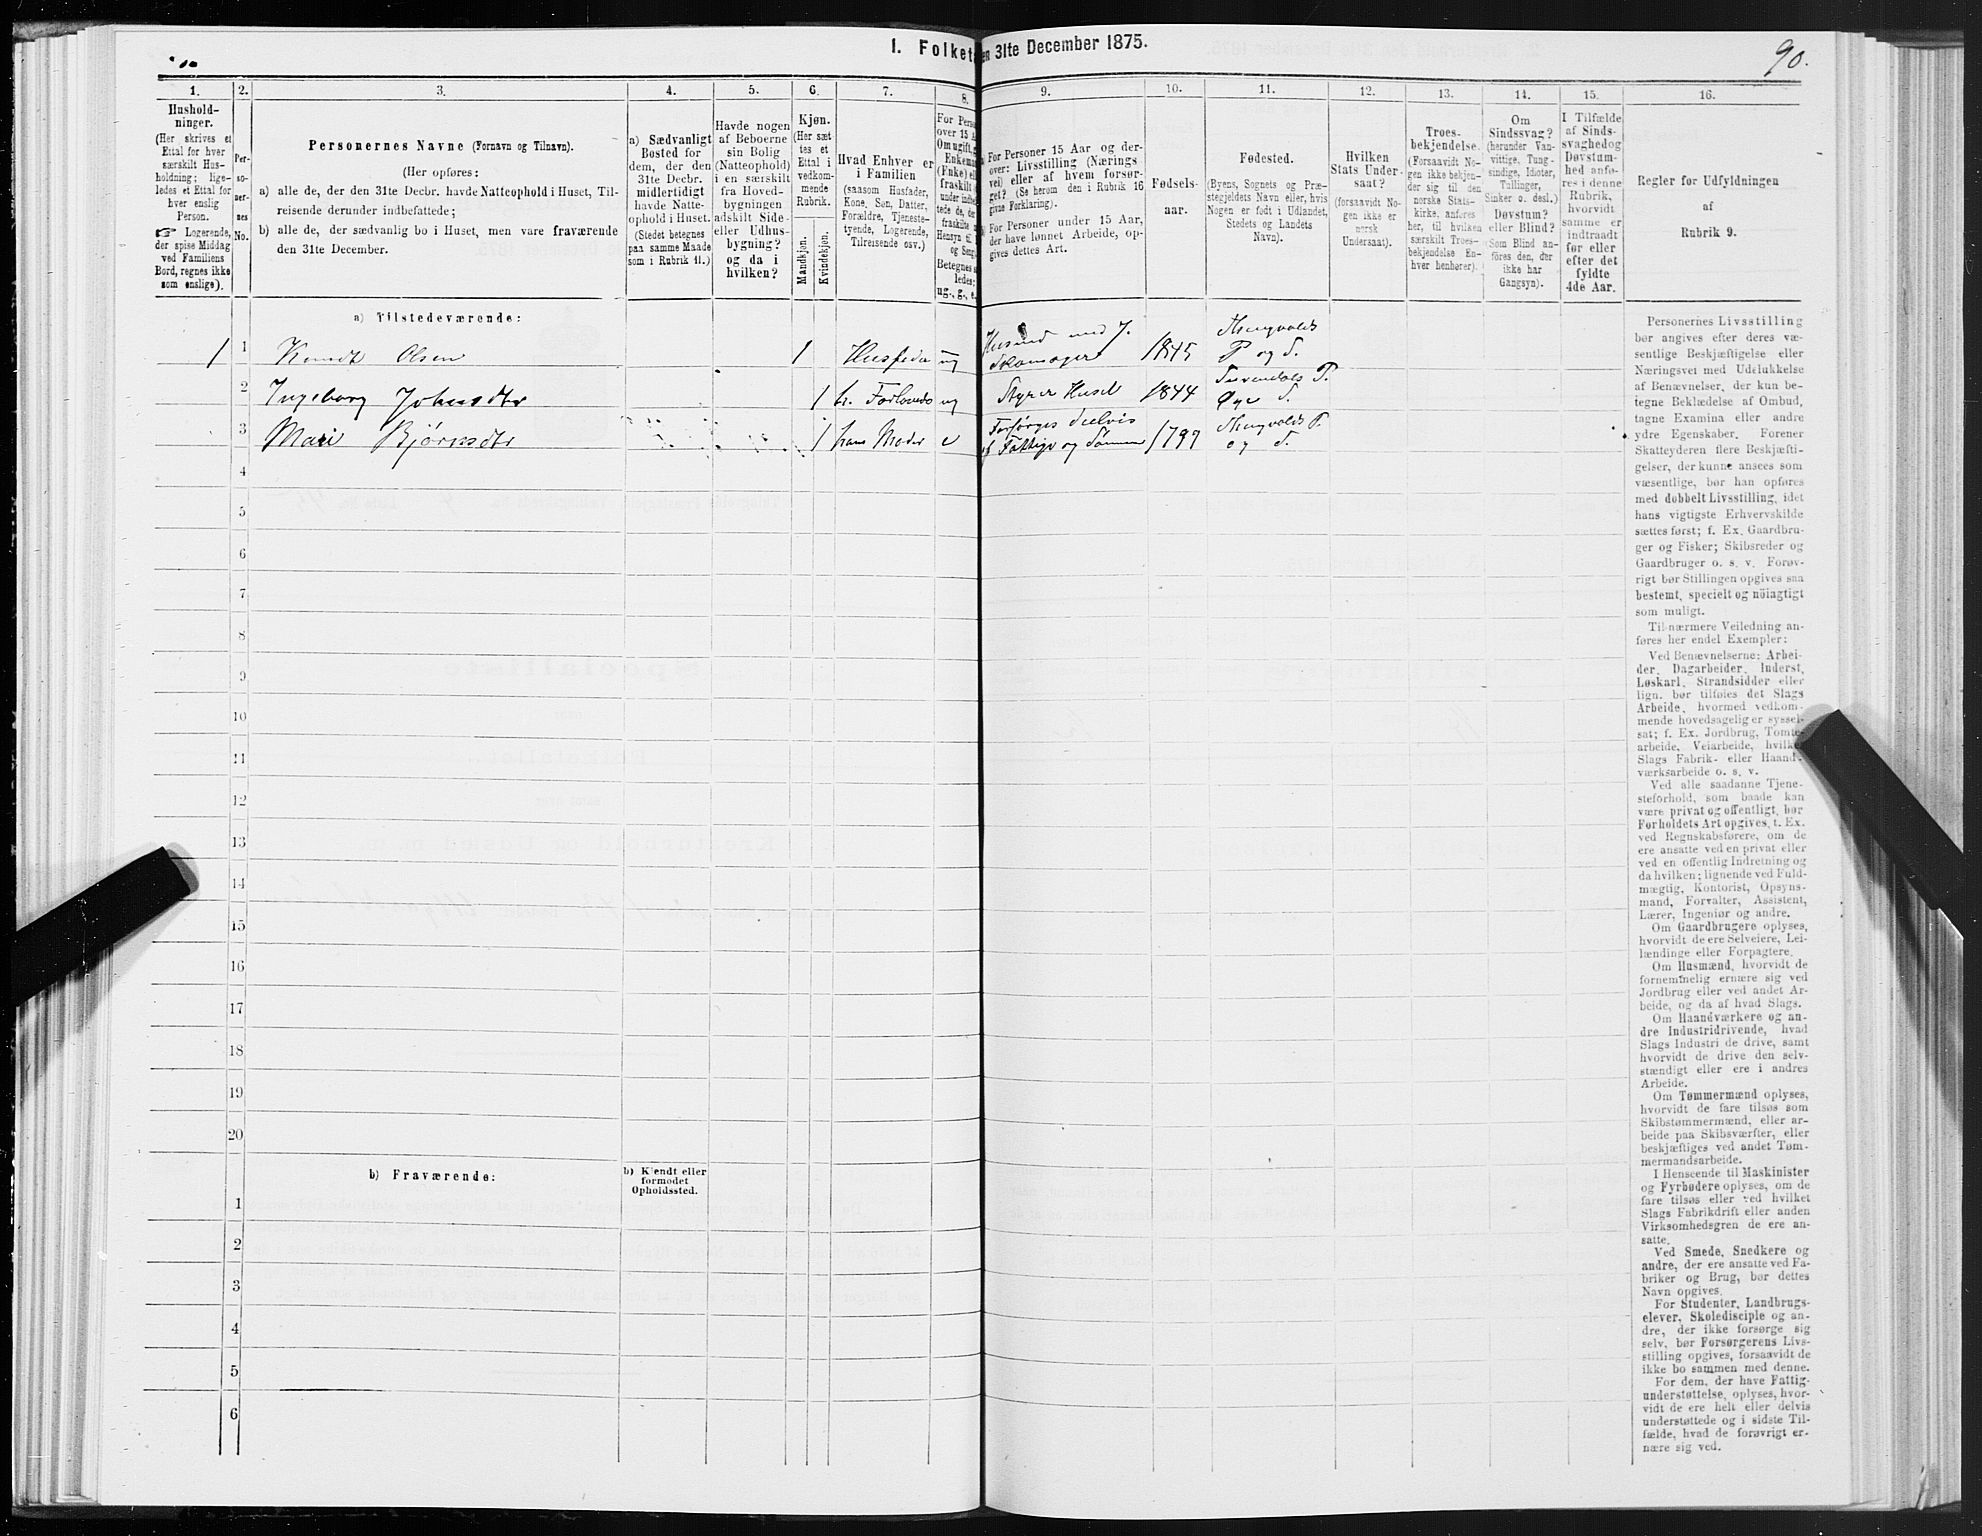 1. Folket
en 31te December 1875.
90.
1.
2.
3.
4.
5.
6.
7.
8.
9.
10.
11.
12.
13.
14.
15.
16.
Hushold-
ninger.
(Her skrives et
Ettal for hver
særskilt Hus-
holdning; lige-
ledes et Ettal for
hver enslig
Person.
☞ Logerende,
der spise Middag
ved Familiens
Bord, regnes ikke
som enslige).
Per-
so-
ner-
nes
No.
Personernes Navne (Fornavn og Tilnavn).
(Her opføres:
a) alle de, der den 31te Decbr. havde Natteophold i Huset, Til-
reisende derunder indbefattede;
b) alle de, der sædvanlig bo i Huset, men vare fraværende
den 31te December.
a) Sædvanligt
Bosted for
dem, der den
31te Decbr.
midlertidigt
havde Natte-
ophold i Huset.
(Stedet betegnes
paa samme Maade
som i Rubrik 11.)
Havde nogen
af Beboerne
sin Bolig
(Natteophold)
i en særskilt
fra Hoved-
bygningen
adskilt Side-
eller Udhus-
bygning?
og da i
hvilken?
Kjøn.
(Her sæt
tes et
Ettal i
vedkom-
mende
Rubrik.
Mandkjøn.
Kvindekjøn.
Hvad Enhver er
i Familien
(saasom Husfader,
Kone, Søn, Datter,
Forældre, Tjeneste-
tyende, Logerende,
Tilreisende osv.)
For Perso
over 15 Aa
Om ugift, g
Enkema
(Enke) el
fraskilt
under indbe
tede de, de
fraskilte
Hensyn ti
og Seng
Betegnes s
ledes:
ug., g., e.
For Personer 15 Aar og der-
over: Livsstilling (Nærings
vei) eller af hvem forsør-
get? (Se herom den i Rubrik 16
givne Forklaring).
For Personer under 15 Aar,
der have lønnet Arbeide, op-
gives dettes Art.
Fødsels-
aar.
Fødested.
(Byens, Sognets og Præ-
stegjeldets Navn eller, hvis
Nogen er født i Udlandet,
Stedets og Landets
Navn).
Hvilken
Stats Under-
saat?
(forsaavidt No-
gen ikke er
norsk
Undersaat).
Troes-
bekjendelse.
(Forsaavidt No-
gen ikke bekjen-
der sig til den
norske Stats-
kirke, anføres
her, til hvilken
særskilt Troes-
bekjendelse En-
hver henhører).
Om
Sindssvag?
(herunder Van-
vittige, Tung-
sindige, Idioter,
Tullinger,
Sinker o. desl.)
Døvstum?
eller Blind?
(Som Blind an-
føres den, der
ikke har
Gangsyn).
I Tilfælde
af Sinds-
svaghed og
Døvstum-
hed anfø-
res i denne
Rubrik,
hvorvidt
samme er
indtraadt
før eller
efter det
fyldte
4de Aar.
Regler for Udfyldningen
af
Rubrik 9.
a) Tilstedeværende:
1 1 Knudt Olsen 1 Husfader ug Husmd med J. 1845
P og S.
2 Ingeborg Johnsdtr 1 h. Forlovede ug Styrer Huset 1844
Øye S.
3 Mari Bjørnsdtr 1 hans Moder e Forsørges deelvis
af Fattigv og Sønnen 1799
og S.
4
5
6
7
8
9
10
11
12
13
14
15
16
17
18
19
20
b) Fraværende:
b) Kjendt eller
formodet
Opholdssted.
1
2
3
4
5
6
Personernes Livsstilling
bør angives efter deres væ-
sentlige Beskjæftigelse eller
Næringsvei med Udelukkelse
af Benævnelser, der kun be-
tegne Beklædelse af Ombud,
tagne Examina eller andre
ydre Egenskaber. Forener
Skatteyderen flere Beskjæfti-
gelser, der kunne ansees som
væsentlige, bør han opføres
med dobbelt Livsstilling, idet
hans vigtigste Erhvervskilde
sættes først; f. Ex. Gaardbru-
ger og Fisker; Skibsreder og
Gaardbruger o. s. v. Forøv-
rigt bør Stillingen opgives saa
bestemt, specielt og nöiagtigt
som muligt.
Til nærmere Veiledning an-
føres her endel Exempler:
Ved Benævnelserne: Arbei-
der, Dagarbeider, Inderst,
Løskarl, Strandsidder eller
lign. bør tilføies det Slags
Arbeide, hvormed vedkom-
mende hovedsagelig er syssel-
sat; f. Ex. Jordbrug, Tomte-
arbeide, Veiarbeide, hvilket
Slags Fabrik- eller Haand-
værksarbeide o. s. v.
Ved alle saadanne Tjene-
steforhold, som baade kan
være privat og offentligt, bør
Forholdets Art opgives, t. Ex.
ved Regnskabsførere, om de
ere ansatte ved en privat eller
ved en offentlig Indretning og
da hvilken; lignende ved Fuld-
mægtig, Kontorist, Opsyns-
mand, Forvalter, Assistent,
Lærer, Ingeniør og andre.
Om Gaardbrugere oplyses,
hvorvidt de ere Selveiere, Lei-
lændinge eller Forpagtere.
Om Husmænd, hvorvidt de
fornemmelig ernære sig ved
Jordbrug eller ved andet Ar-
beide, og da af hvad Slags.
Om Haandværkere og an-
dre Industridrivende, hvad
Slags Industri de drive, samt
hvorvidt de drive den selv-
stændigt eller ere i andres
Arbeide.
Om Tømmermænd oplyses,
hvorvidt de fare tilsøs som
Skibstømmermænd, eller ar-
beide paa Skibsværfter, eller
beskjæftiges ved andet Tøm-
mermandsarbeide.
I Henseende til Maskinister
og Fyrbødere oplyses, om de
fare tilsøs eller ved hvilket
Slags Fabrikdrift eller anden
Virksomhedsgren de ere an-
satte.
Ved Smede, Snedkere og
andre, der ere ansatte ved Fa-
briker og Brug, bør dettes
Navn opgives.
For Studenter, Landbrugs-
elever, Skoledisciple og an-
dre, der ikke forsørge sig
selv, bør Forsørgerens Livs-
stilling opgives, forsaavidt de
ikke bo sammen med denne.
For dem, der have Fattig-
understøttelse, oplyses, hvor-
vidt de ere helt eller delvis
understøttede og i sidste Til-
fælde, hvad de forøvrigt er-
nære sig ved.